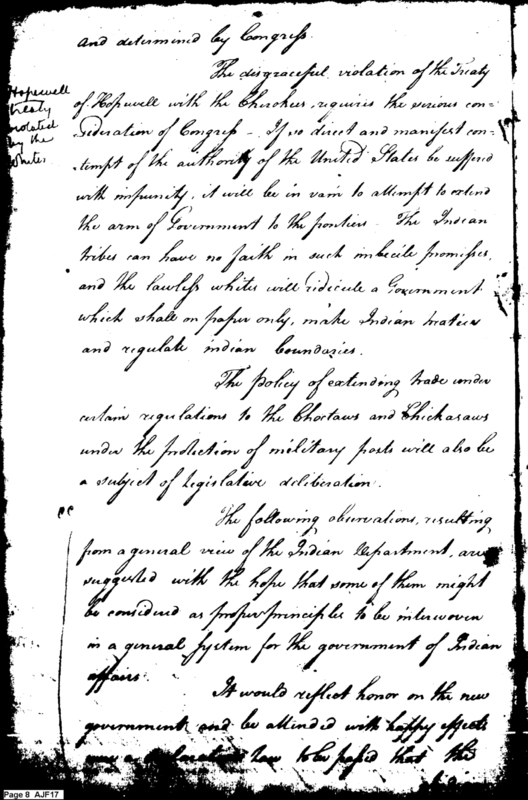 and determined by Congress.
The disgraceful violation of the Treaty
Hopewell
treaty
violated
by the
Whites
of Hopewell with the Cherokees, requires the serious con-
sideration of Congress - If so direct and manifest con-
tempt of the authority of the United States be suffered
with impunity, it will be in vain to attempt to extend
the arm of Government to the frontiers - The Indian
tribes can have no faith in such imbecile promises,
and the lawless whites will ridicule a Government
which shall on paper only, make Indian treaties
and regulate indian boundaries.
The policy of extending trade under
certain regulations to the Choctaws and Chickasaws
under the protection of military posts will also be
a subject of Legislative deliberation.
The following observations, resulting
from a general view of the Indian Department, are
suggested with the hope that some of them might
be considered as proper principles to be interwoven
in a general System for the government of Indian
affairs.
It would reflect honor on the new
government and be attended with happy effects
were a declarative law to be passed that the
Page 8 AJF17